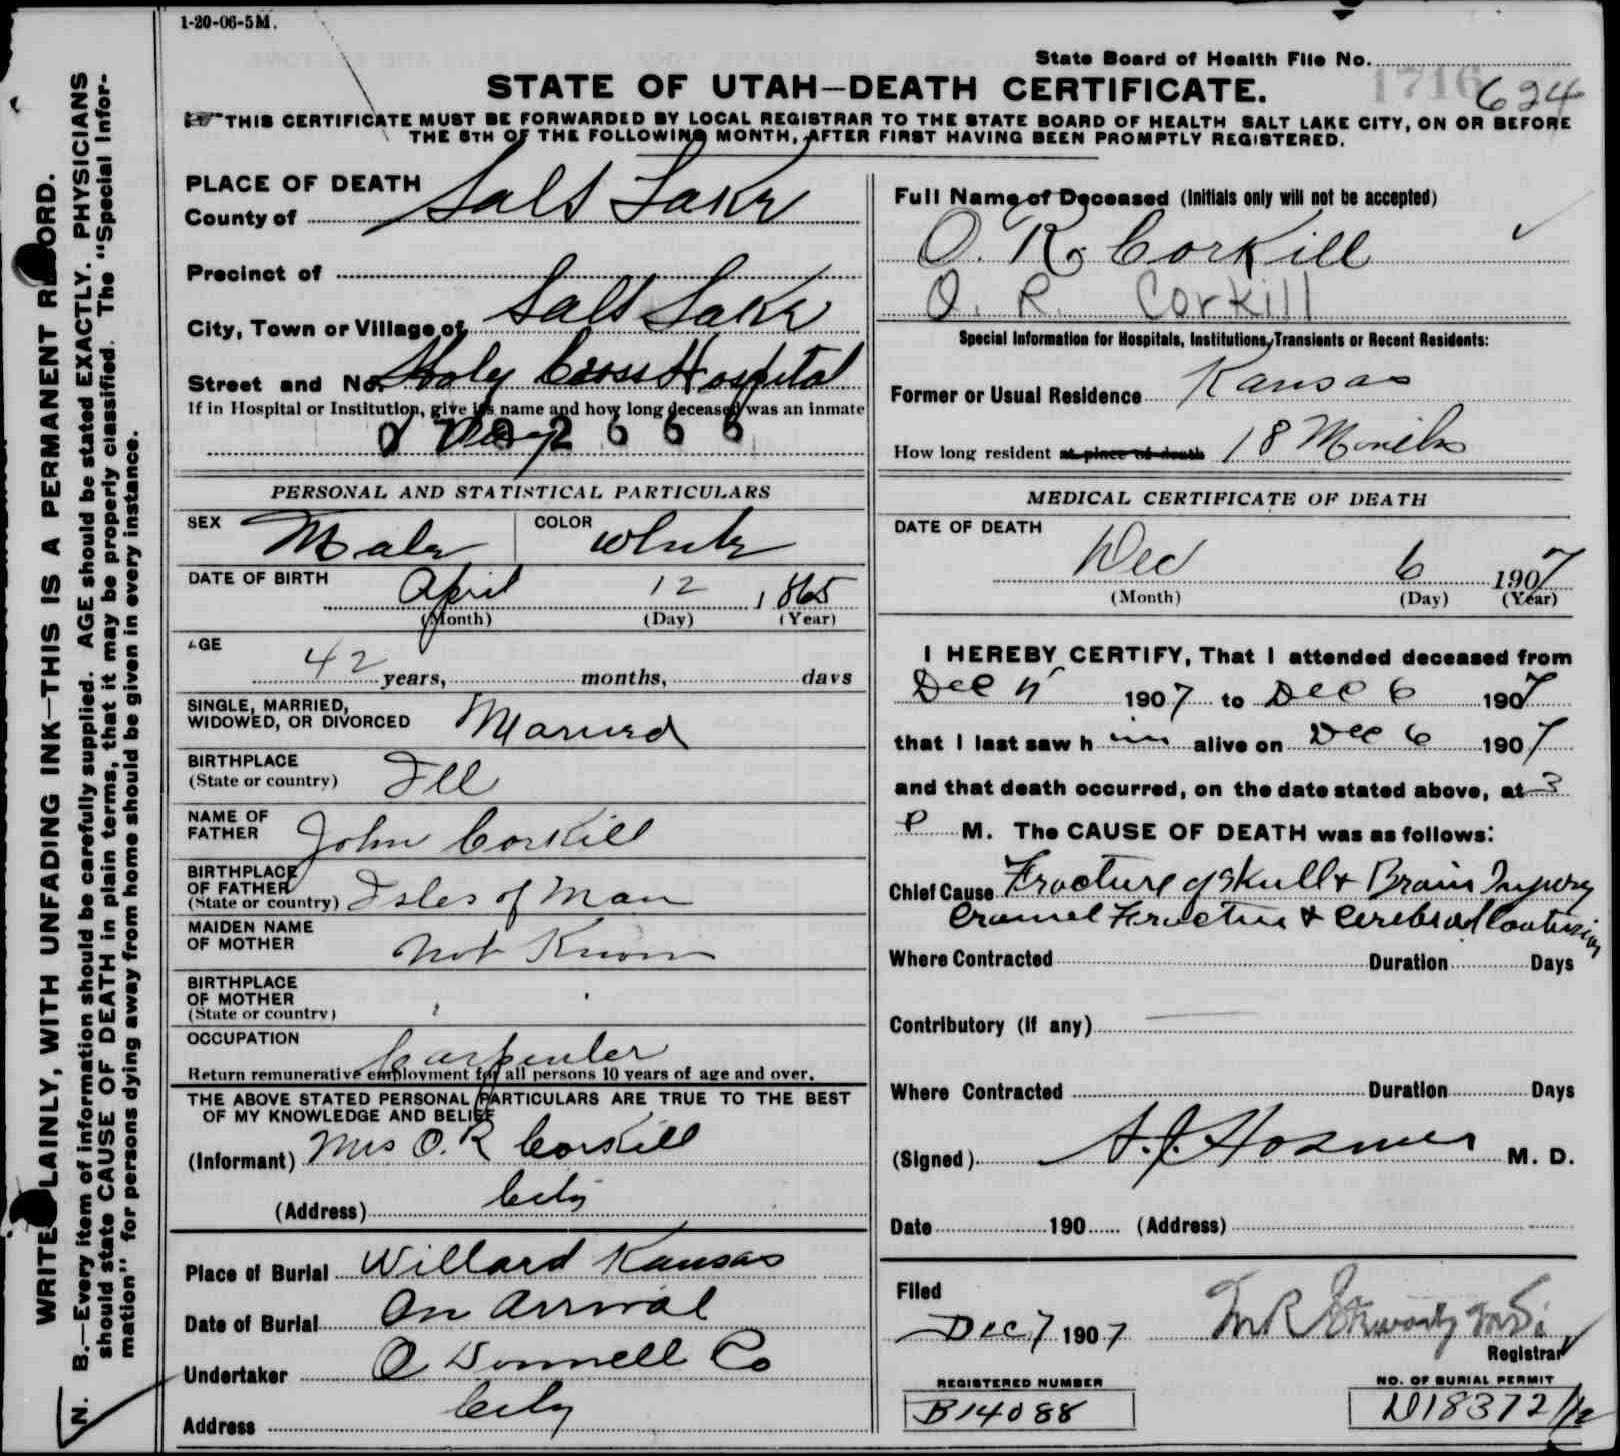 1-20-06-5M.
State Board of Health File No.
1716 624
STATE OF UTAH—DEATH CERTIFICATE.
THIS CERTIFICATE MUST BE FORWARDED BY LOCAL REGISTRAR TO THE STATE BOARD OF HEALTH SALT LAKE CITY, ON OR BEFORE
THE 5TH OF THE FOLLOWING MONTH, AFTER FIRST HAVING BEEN PROMPTLY REGISTERED.
WRITE PLAINLY, WITH UNFADING INK—THIS IS A PERMANENT RECORD.
N. B.—Every item of information should be carefully supplied. AGE should be stated EXACTLY. PHYSICIANS
should state CAUSE OF DEATH in plain terms, that it may be properly classified. The "Special Infor-
mation" for persons dying away from home should be given in every instance.
PLACE OF DEATH
County of Salt Lake
Precinct of
City, Town or Village of Salt Lake
Street and No. Holy Cross Hospital
If in Hospital or Institution, give its name and how long deceased was an inmate
PERSONAL AND STATISTICAL PARTICULARS
SEX Male COLOR White
DATE OF BIRTH April 12 1865
(Month) (Day) (Year)
AGE
42 years, months, days
SINGLE, MARRIED,
WIDOWED, OR DIVORCED Married
BIRTHPLACE
(State or country) Ill
NAME OF
FATHER John Corkill
BIRTHPLACE
OF FATHER
(State or country) Isles of Man
MAIDEN NAME
OF MOTHER Not Known
BIRTHPLACE
OF MOTHER
(State or country)
OCCUPATION Carpenter
Return remunerative employment for all persons 10 years of age and over.
THE ABOVE STATED PERSONAL PARTICULARS ARE TRUE TO THE BEST
OF MY KNOWLEDGE AND BELIEF
(Informant) Mrs O. R Corkill
(Address) City
Place of Burial Willard Kansas
Date of Burial On Arrival
Undertaker O Donnell Co
Address City
Full Name of Deceased (Initials only will not be accepted)
O. R. Corkill
O. R. Corkill
Special Information for Hospitals, Institutions, Transients or Recent Residents:
Former or Usual Residence Kansas
How long resident at place of death 18 Months
MEDICAL CERTIFICATE OF DEATH
DATE OF DEATH
Dec 6 1907
(Month) (Day) (Year)
I HEREBY CERTIFY, That I attended deceased from
Dec 1907 to Dec 6 1907
that I last saw him alive on Dec 6 1907
and that death occurred, on the date stated above, at 3
P M. The CAUSE OF DEATH was as follows:
Chief Cause Fracture of skull & Brain Injury
Fracture & Cerebral Contusion
Where Contracted Duration Days
Contributory (if any)
Where Contracted Duration Days
(Signed) Hosmer M. D.
Date 190 (Address)
Filed
Dec 7 1907
Registrar
REGISTERED NUMBER
B14088
NO. OF BURIAL PERMIT
D18372